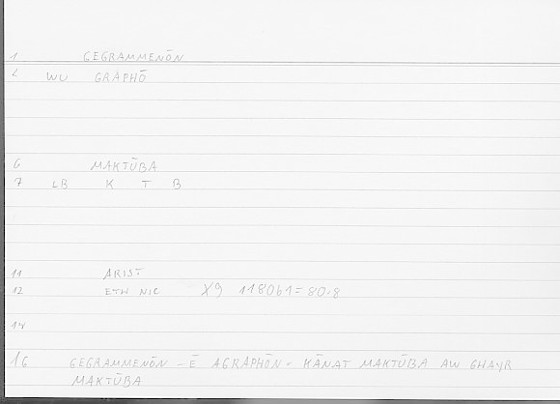 1 GEGRAMMENŌN
2 WU GRAPHŌ
6 MAKTŪBA
7 LB K T B
11 ARIST
12 ETH NIC X9 118061=80,8
14
16 GEGRAMMENŌN - Ē AGRAPHŌN - KĀNAT MAKTŪBA AW GHAYR
MAKTŪBA